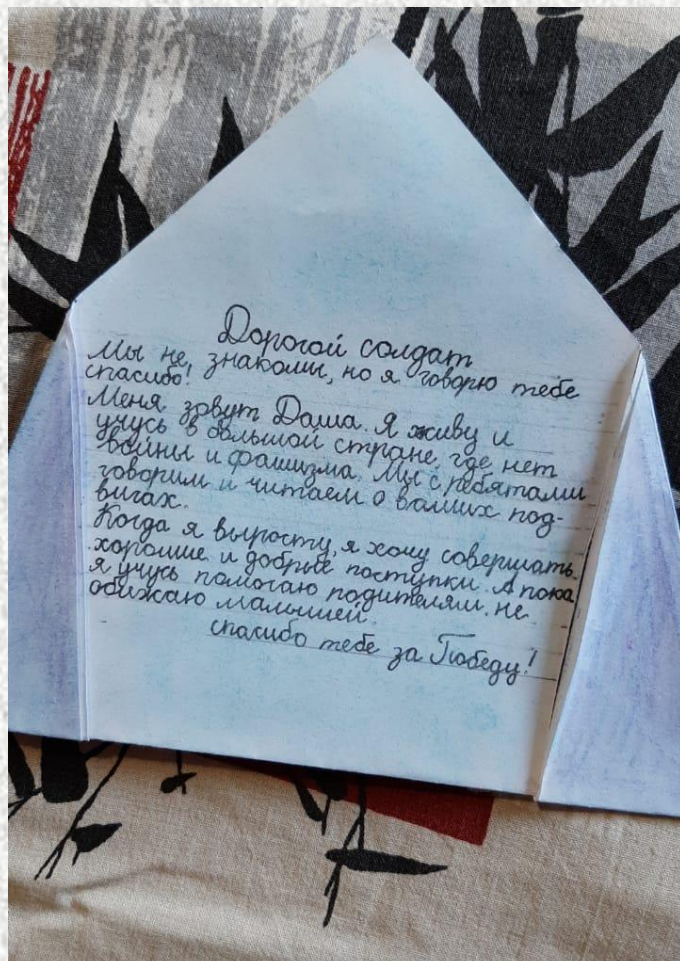 Дорогой солдат
Мы не знакомы, но я говорю тебе
спасибо!
Меня зовут Даша. Я живу и
учусь в большой стране где нет
войны и фашизма. Мы с ребятами
говорим и читаем о ваших под-
вигах.
Когда я вырасту, я хочу совершать
хорошие и добрые поступки. А пока
я учусь помогаю подителям, не
обижаю малышей.
спасибо тебе за Победу!